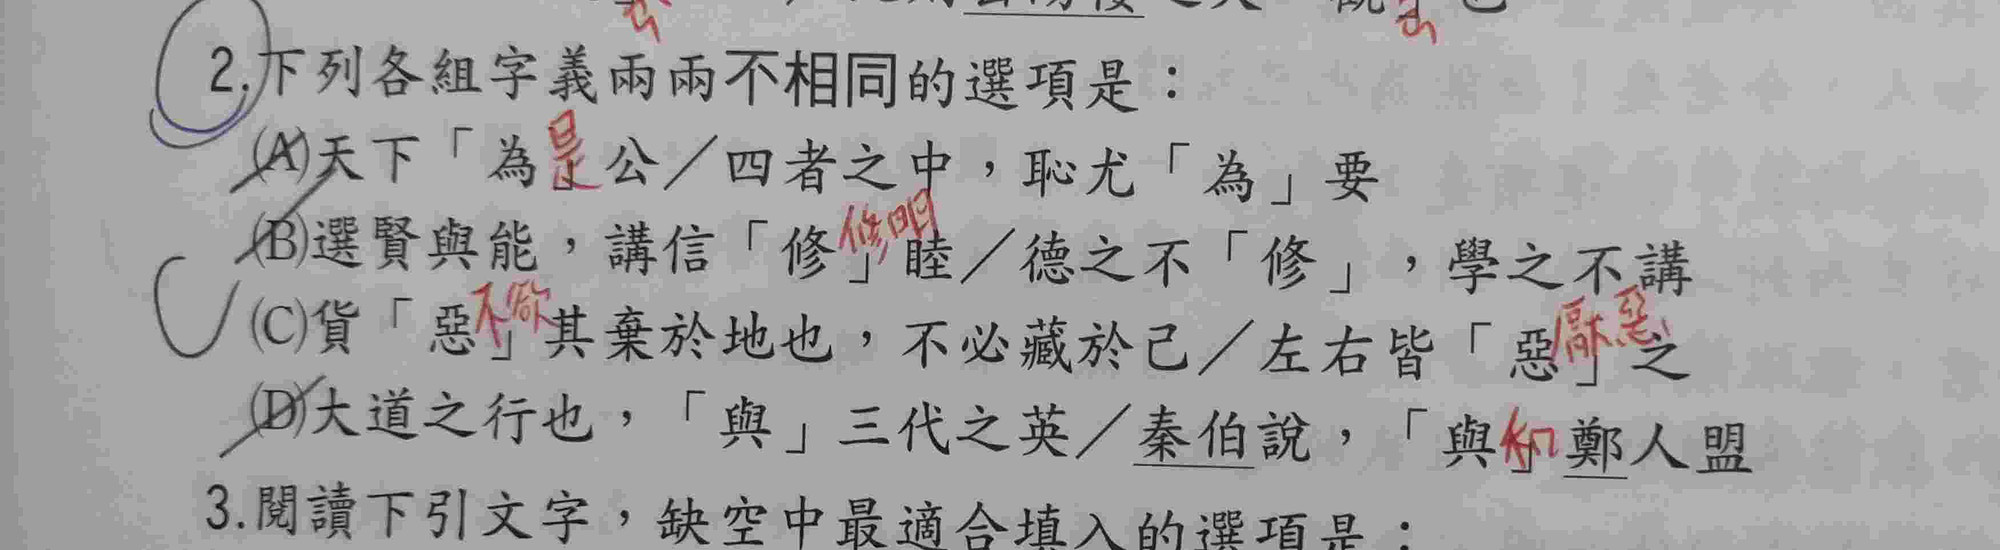 2.下列各組字義兩兩不相同的選項是：
(A)天下「為」公／四者之中，恥尤「為」要
是
(B)選賢與能，講信「修」睦／德之不「修」，學之不講
修明
(C)貨「惡」其棄於地也，不必藏於己／左右皆「惡」之
不欲
厭惡
(D)大道之行也，「與」三代之英／秦伯說，「與」鄭人盟
和
3.閱讀下引文字，缺空中最適合填入的選項是：